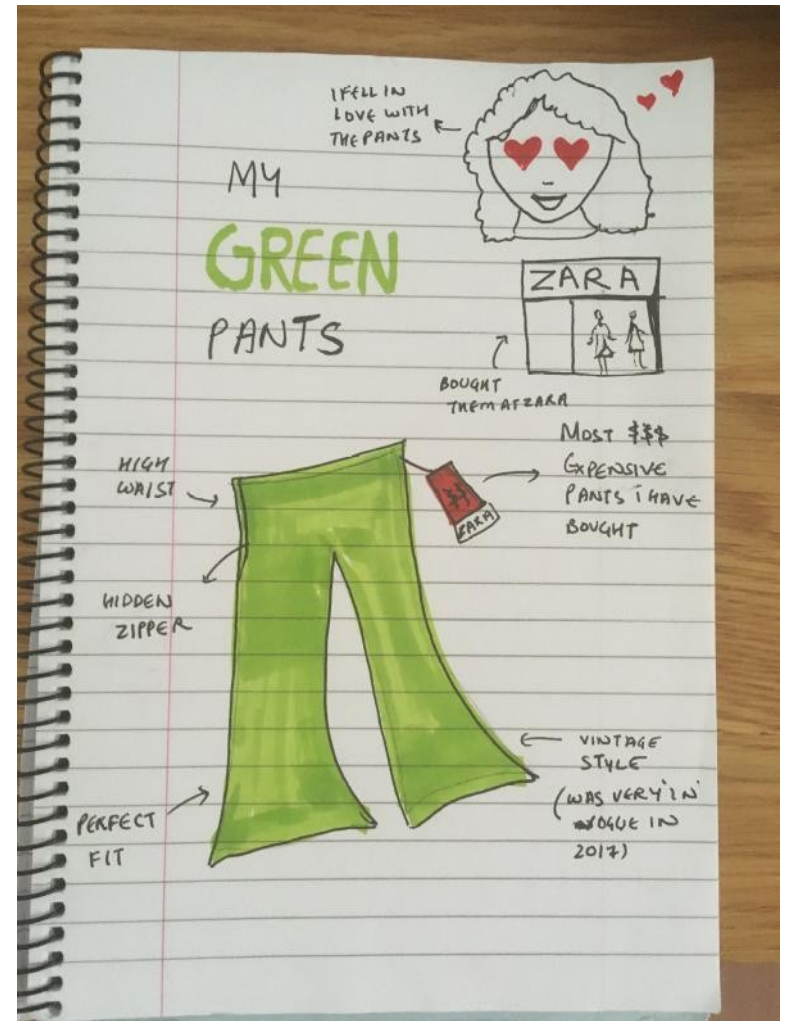 I FELL IN
LOVE WITH
THE PANTS
MY
GREEN
PANTS
ZARA
BOUGHT
THEM AT ZARA
MOST $$$
EXPENSIVE
PANTS I HAVE
BOUGHT
HIGH
WAIST
$$
ZARA
HIDDEN
ZIPPER
VINTAGE
STYLE
(WAS VERY 'IN'
VOGUE IN
2017)
PERFECT
FIT